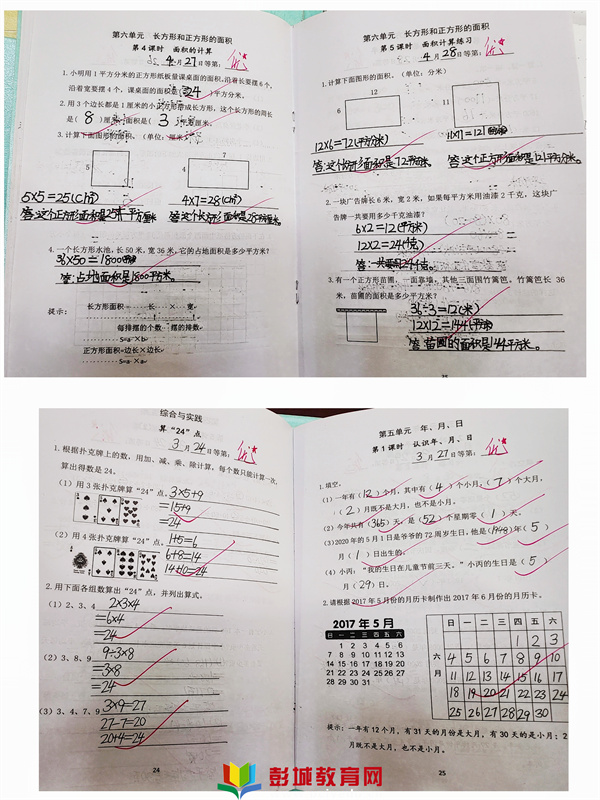 第六单元 长方形和正方形的面积
第4课时 面积的计算
4月27日等第: 优
1.小明用1平方分米的正方形纸板量课桌面的面积,沿着长要摆6个,
沿着宽要摆4个,课桌面的面积是(24)平方分米。
2.用3个边长都是1厘米的小正方形拼成长方形,这个长方形的周长
是(8)厘米,面积是(3)平方厘米。
3.计算下面图形的面积。(单位:厘米)
5
7
4
5×5=25(cm²)
4×7=28(cm²)
答:这个正方形面积是25平方厘米
答:这个长方形面积是28平方厘米。
4.一个长方形水池,长50米,宽36米,它的占地面积是多少平方米?
36×50=1800(平方米)
答:占地面积是1800平方米。
提示:
长方形面积 长 × 宽
每排摆的个数 摆的排数
S=a×b
正方形面积=边长×边长
S=a×a
第六单元 长方形和正方形的面积
第5课时 面积计算练习
4月28日等第: 优
1.计算下面图形的面积。(单位:分米)
12
6
11
12×6=72(平方分米)
11×11=121
答:这个长方形面积是72平方分米。
答:这个正方形面积是121平方分米。
2.一块广告牌长6米,宽2米,如果每平方米用油漆2千克,这块广
告牌一共要用多少千克油漆?
6×2=12(平方米)
12×2=24(千克)
答:一共要用24千克。
3.有一个正方形苗圃,一面靠墙,其他三面围竹篱笆。竹篱笆长36
米,苗圃的面积是多少平方米?
36÷3=12(米)
12×12=144(平方米)
答:苗圃的面积是144平方米。
综合与实践
算“24”点
3月24日等第: 优
1.根据扑克牌上的数,用加、减、乘、除计算,每个数只能计算一次,
算出得数是24。
(1)用3张扑克牌算“24”点。
3×5+9
=15+9
=24
(2)用4张扑克牌算“24”点。
1+5=6
6+8=14
14+10=24
2.用下面各组数算出“24”点,并列出算式。
(1)2、3、4
2×3×4
=6×4
=24
(2)3、8、9
9÷3×8
=3×8
=24
(3)3、4、7、9
3×9=27
27-7=20
20+4=24
24
第五单元 年、月、日
第1课时 认识年、月、日
3月27日等第: 优
1.填空。
(1)一年有(12)个月,其中有(4)个小月,(7)个大月,
(2)月既不是大月,也不是小月。
(2)今年共有(365)天,是(52)个星期零(1)天。
(3)2020年的5月1日是爷爷的72周岁生日,他是(1948)年(5)
月(1)日出生的。
(4)小丙:“我的生日在儿童节前三天。”小丙的生日是(5)
月(29)日。
2.请根据2017年5月份的月历卡制作出2017年6月份的月历卡。
2017年5月
日 一 二 三 四 五 六
1 2 3 4 5 6
7 8 9 10 11 12 13
14 15 16 17 18 19 20
21 22 23 24 25 26 27
28 29 30 31
六月
日 一 二 三 四 五 六
1 2 3
4 5 6 7 8 9 10
11 12 13 14 15 16 17
18 19 20 21 22 23 24
25 26 27 28 29 30
提示:一年有12个月,有31天的月份是大月,有30天的是小月;2
月既不是大月,也不是小月。
25
彭城教育网